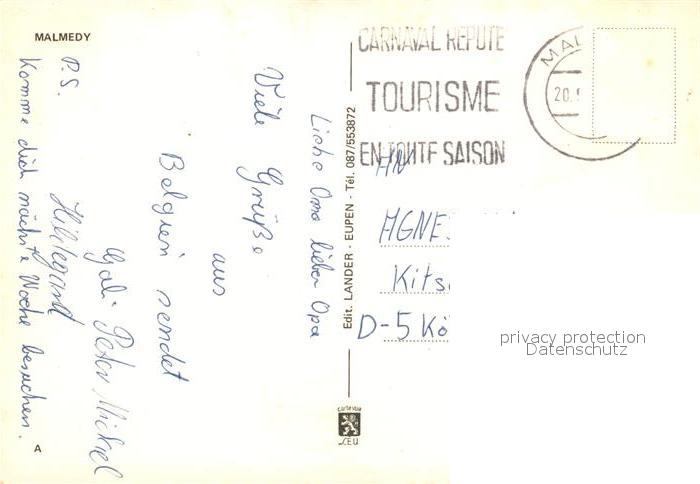 MALMEDY
CARNAVAL REPUTE
TOURISME
EN TOUTE SAISON
MAL
20.
Liebe Oma lieber Opa
Viele Grüße
aus
Belgien sendet
Gabi Peter Michel
Hillegard
P.S.
Komme dich nächste Woche besuchen.
A
Edit. LANDER - EUPEN - Tél. 087/553872
CEU
AN
AGNES
Kits
D-5 Kö
privacy protection
Datenschutz